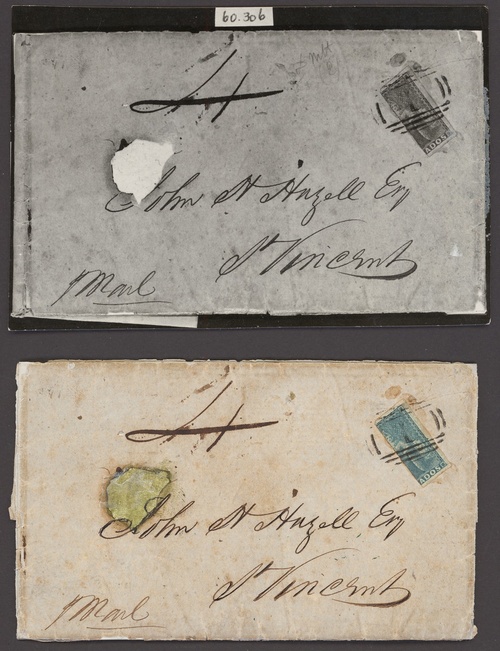 60.306
4
John H Hazell Esq
St Vincent
Mail
4
John H Hazell Esq
St Vincent
Mail